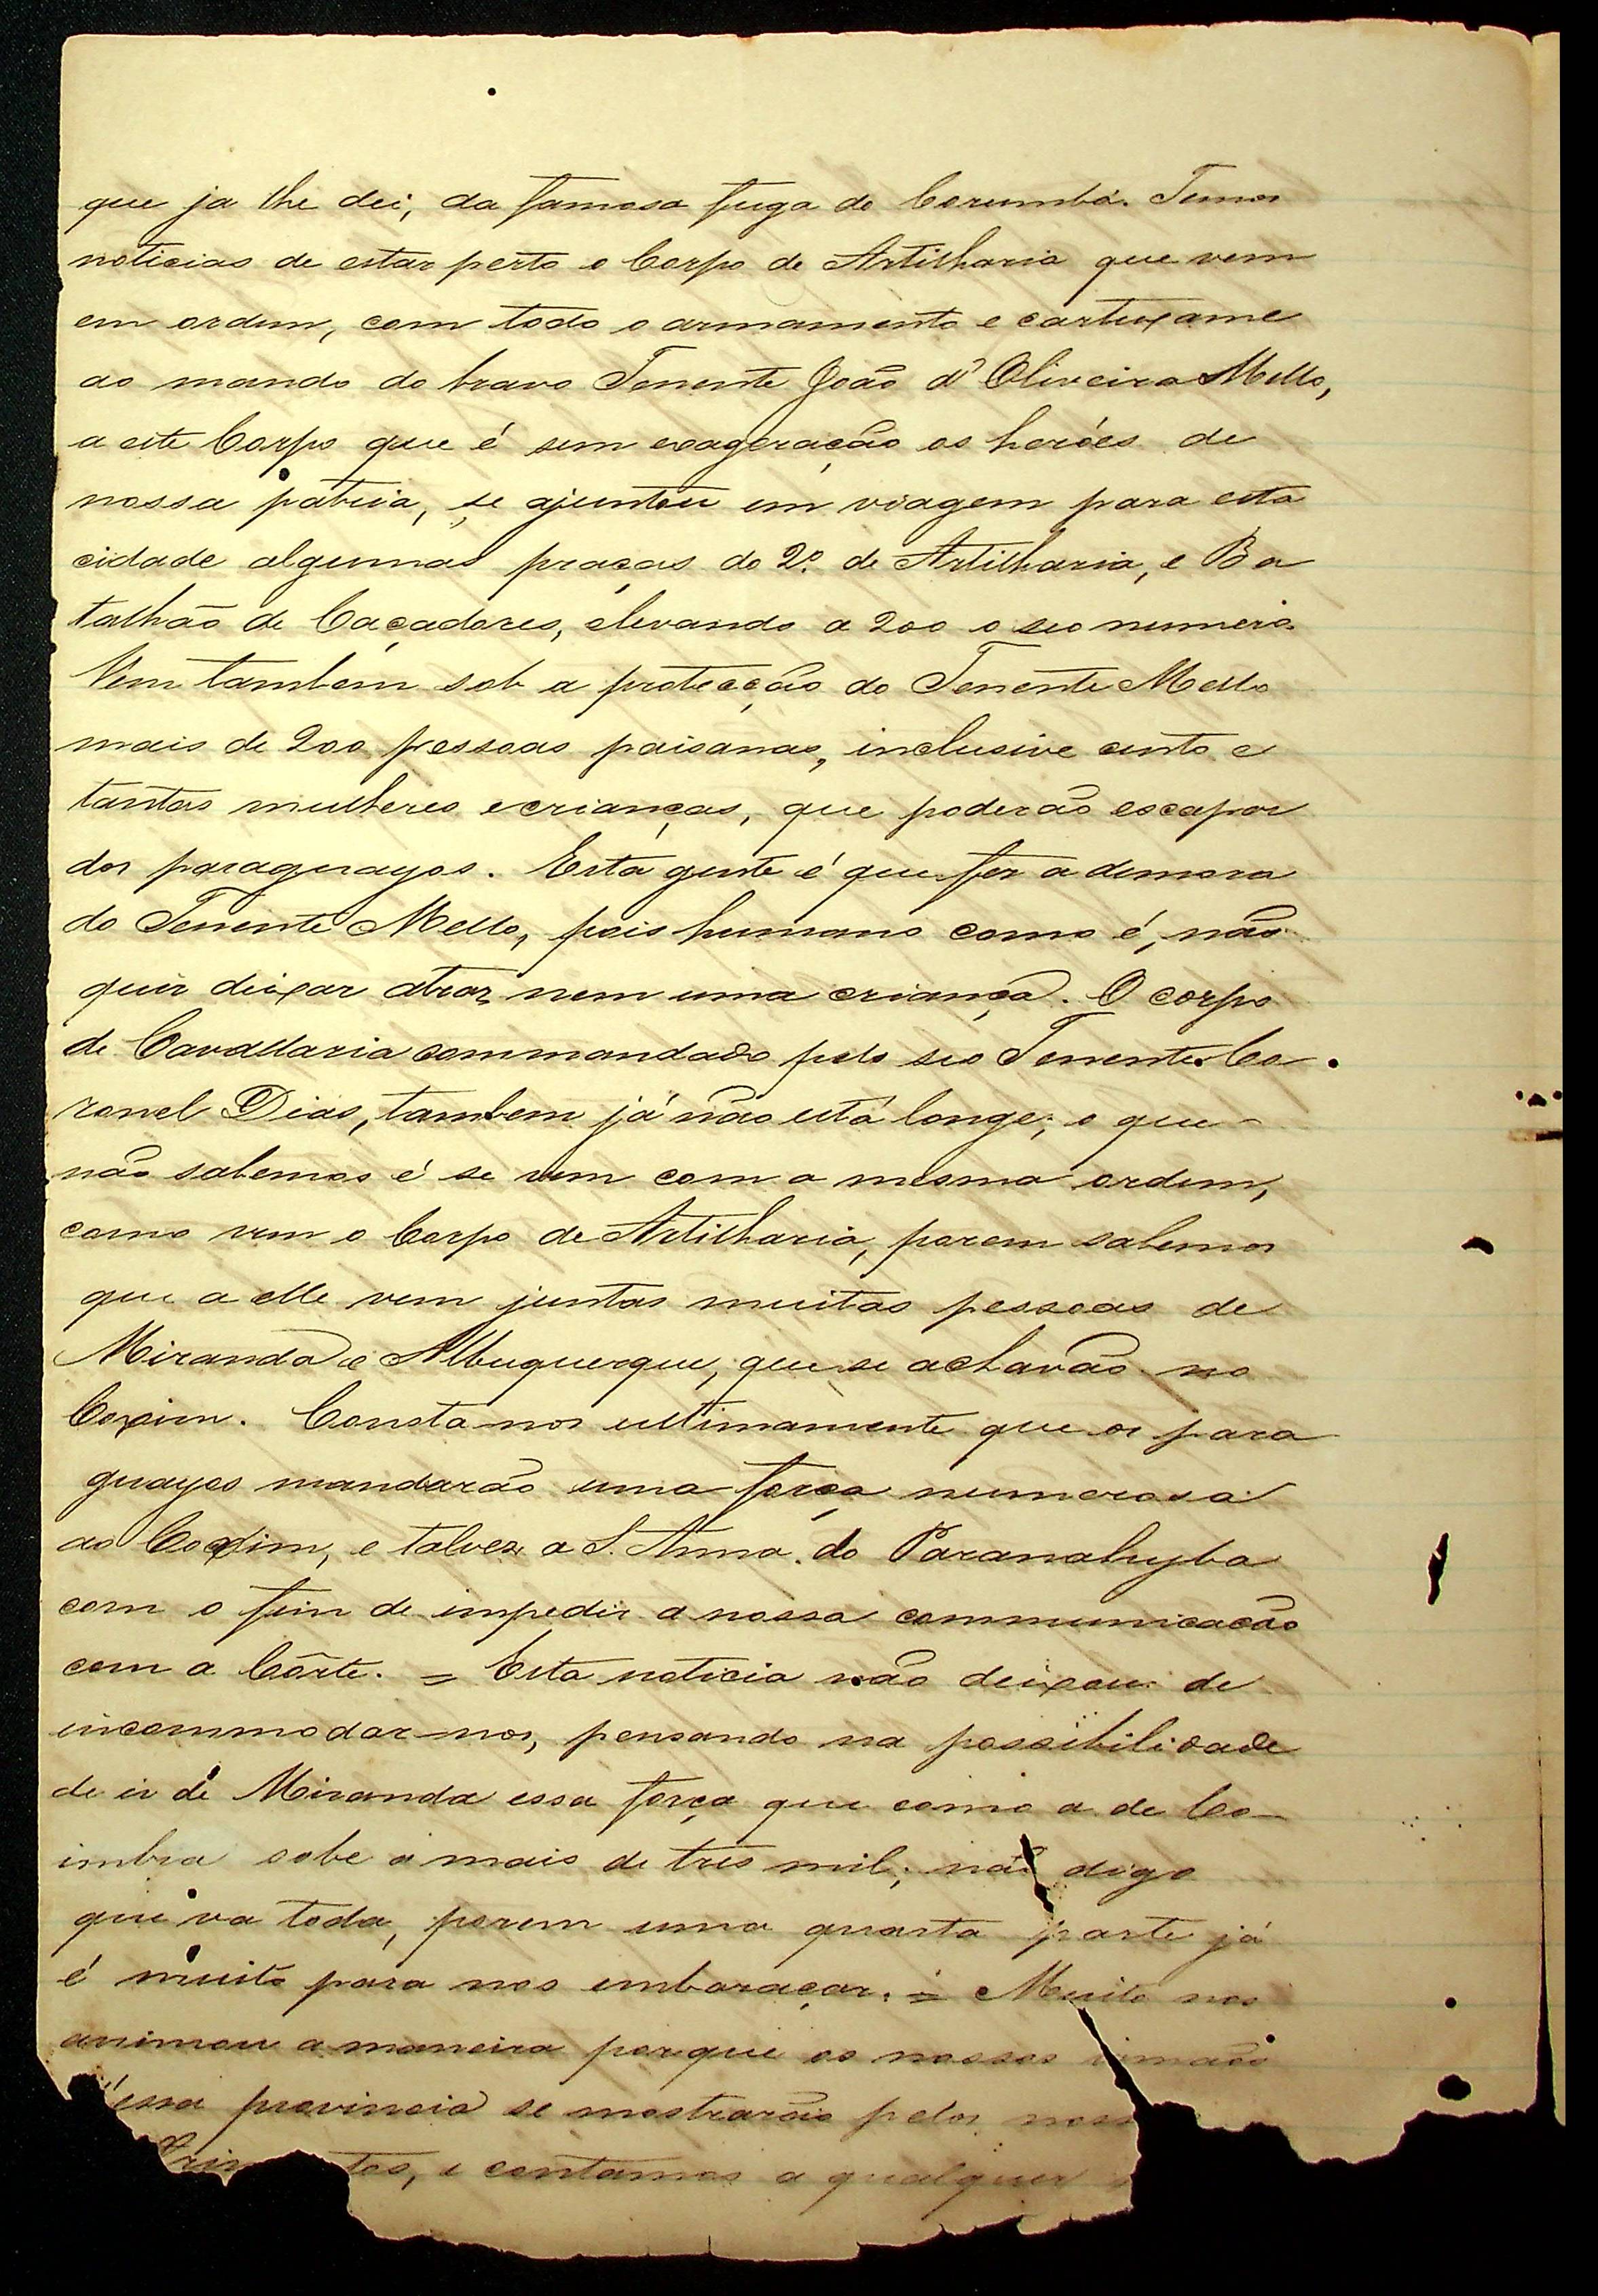 que ja lhe dei, da famosa fuga de Corumbá. Temos
noticias de estar perto o Corpo de Artilharia que vem
em ordem, com todo o armamento e cartuxame
ao mando do bravo Tenente João d'Oliveira Mello,
a este Corpo que é sem exageração os heróes de
nossa patria, se ajuntou em viagem para esta
cidade algumas praças do 2º. de Artilharia, e Ba
talhão de Caçadores, elevando a 200 o seo numero
Vem tambem sob a protecção do Tenente Mello
mais de 200 pessoas paisanas, inclusive cento e
tantas mulheres e crianças, que poderão escapar
dos paraguayos. Esta gente é que fez a demora
do Tenente Mello, pois humano como é, não
quis deixar atraz nem uma criança. O corpo
de Cavallaria commandado pelo seo Tenente Co
ronel Dias, tambem já não está longe; o que
não sabemos é se vem com a mesma ordem,
como vem o Corpo de Artilharia, porem sabemos
que a elle vem juntas muitas pessoas de
Miranda e Albuquerque, que se achavão no
Coxim. Consta-nos ultimamente que os para
guayos mandarão uma força numerosa
ao Coxim, e talvez a S. Anna do Paranahyba
com o fim de impedir a nossa communicação
com a Côrte. = Esta noticia não deixou de
incommodar-nos, pensando na possibilidade
de ir de Miranda essa força que como a de Co-
imbra sobe a mais de tres mil; não digo
que va toda, porem uma quarta parte já
é muito para nos embaraçar. = Muito nos
animou a maneira porque os nossos irmãos
d'essa provincia se mostrarão pelos noss
frim tos, e contamos a qualquer